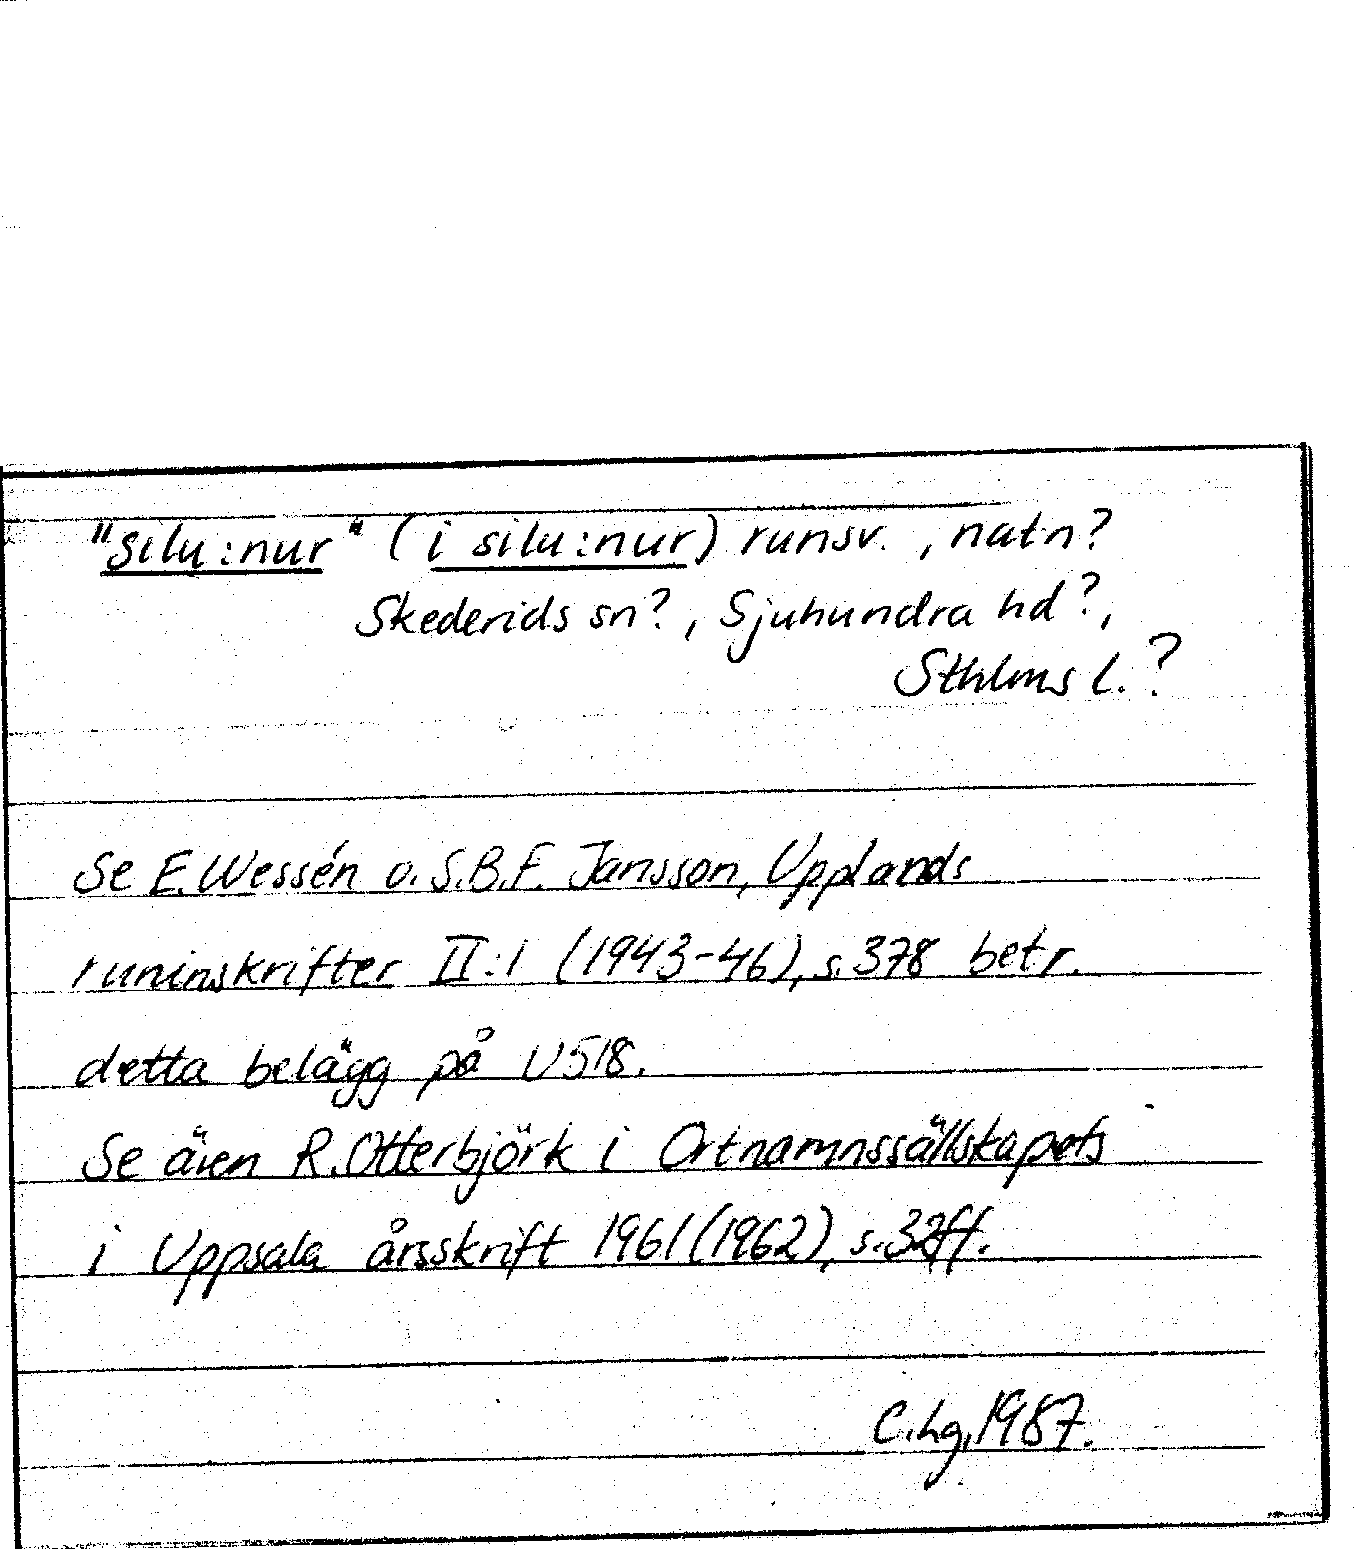 "silu:nur" (i silu:nur) runsv., natn?
Skederids sn?, Sjuhundra hd?,
Sthlms l.?
Se E. Wessén o. S.B.F. Jansson, Upplands
runinskrifter II:1 (1943-46), s. 378 betr.
detta belägg på U518.
Se även R. Otterbjörk i Ortnamnssällskapets
i Uppsala årsskrift 1961 (1962), s. 32ff.
C.Lg, 1987.